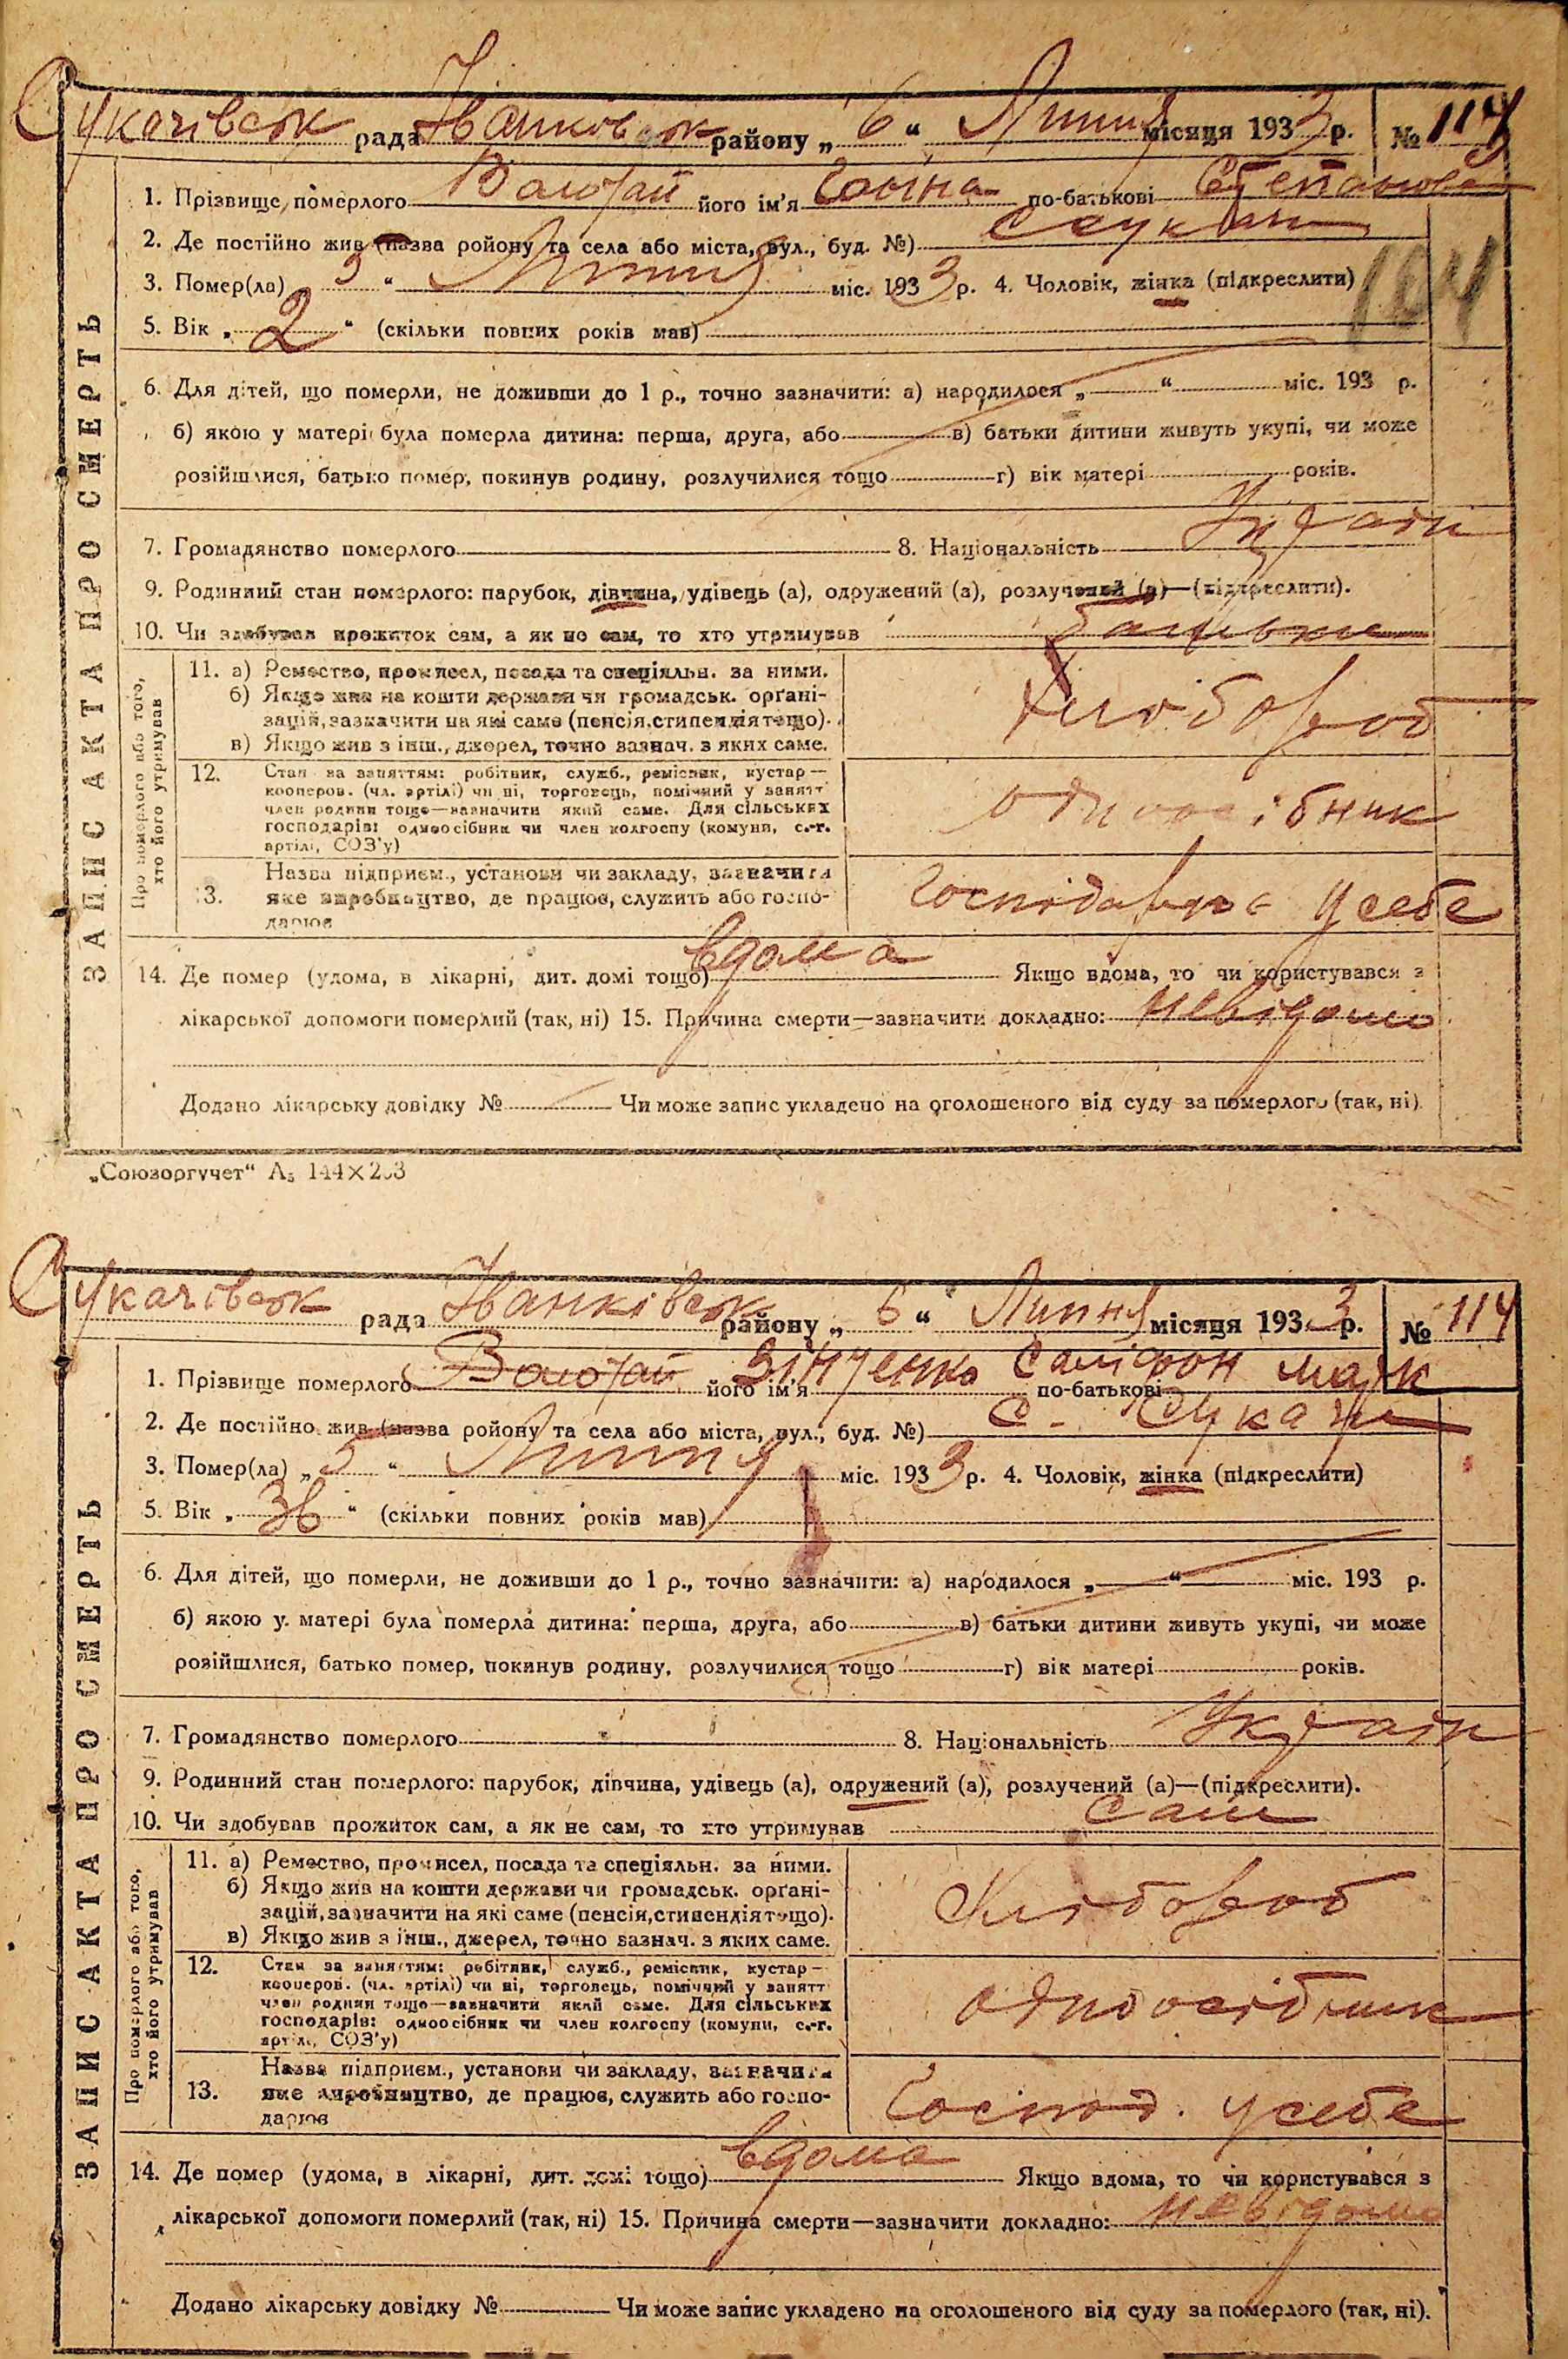 Сукачівськ рада Іванковськ району „ 6 “ Липня місяця 1933 р. № 114
1. Прізвище померлого його ім'я по-батькові Степановa
2. Де постійно жив (назва ройону та села або міста, вул., буд. №)
3. Помер(ла) „ 5 “ Липня міс. 1933 р. 4. Чоловік, жінка (підкреслити) 104
5. Вік „ 2 “ (скільки повних років мав)
6. Для дітей, що померли, не доживши до 1 р., точно зазначити: а) народилося „ “ міс. 193 р.
б) якою у матері була померла дитина: перша, друга, або в) батьки дитини живуть укупі, чи може
розійшлися, батько помер, покинув родину, розлучилися тощо г) вік матері років.
7. Громадянство померлого 8. Національність Україн
9. Родинний стан померлого: парубок, дівчина, удівець (а), одружений (а), розлучений (а)—(підкреслити).
10. Чи здобував прожиток сам, а як не сам, то хто утримував батько
ЗАПИС АКТА ПРО СМЕРТЬ
Про померлого або того,
хто його утримував
11. а) Ремество, промисел, посада та спеціяльн. за ними.
б) Якщо жив на кошти держави чи громадськ. орґані-
зацій, зазначити на які саме (пенсія, стипендія тощо).
в) Якщо жив з інш., джерел, точно зазнач. з яких саме.
Хлібороб
12. Стан за заняттям: робітник, служб., ремісник, кустар—
кооперов. (чл. артілі) чи ні, торговець, помічний у занятт
член родини тощо—зазначити який саме. Для сільських
господарів: одноосібник чи член колгоспу (комуни, с.-г.
артілі, СОЗ'у)
одноосібник
13. Назва підприєм., установи чи закладу, зазначити
яке виробництво, де працює, служить або госпо-
дарює
Господарює у себе
14. Де помер (удома, в лікарні, дит. домі тощо) вдома Якщо вдома, то чи користувався з
лікарської допомоги померлий (так, ні) 15. Причина смерти—зазначити докладно: невідомо
Додано лікарську довідку № Чи може запис укладено на оголошеного від суду за померлого (так, ні).
„Союзоргучет“ А₅ 144×203
Сукачівськ рада Іванківськ району „ 6 “ Липня місяця 1933 р. № 114
1. Прізвище померлого Зінченко його ім'я по-батькові Марк
2. Де постійно жив (назва ройону та села або міста, вул., буд. №) с. Сукачі
3. Помер(ла) „ 5 “ Липня міс. 1933 р. 4. Чоловік, жінка (підкреслити)
5. Вік „ 36 “ (скільки повних років мав)
6. Для дітей, що померли, не доживши до 1 р., точно зазначити: а) народилося „ “ міс. 193 р.
б) якою у матері була померла дитина: перша, друга, або в) батьки дитини живуть укупі, чи може
розійшлися, батько помер, покинув родину, розлучилися тощо г) вік матері років.
7. Громадянство померлого 8. Національність Україн
9. Родинний стан померлого: парубок, дівчина, удівець (а), одружений (а), розлучений (а)—(підкреслити).
10. Чи здобував прожиток сам, а як не сам, то хто утримував Сам
ЗАПИС АКТА ПРО СМЕРТЬ
Про померлого або того,
хто його утримував
11. а) Ремество, промисел, посада та спеціяльн. за ними.
б) Якщо жив на кошти держави чи громадськ. орґані-
зацій, зазначити на які саме (пенсія, стипендія тощо).
в) Якщо жив з інш., джерел, точно зазнач. з яких саме.
Хлібороб
12. Стан за заняттям: робітник, служб., ремісник, кустар—
кооперов. (чл. артілі) чи ні, торговець, помічний у занятт
член родини тощо—зазначити який саме. Для сільських
господарів: одноосібник чи член колгоспу (комуни, с.-г.
артілі, СОЗ'у)
одноосібник
13. Назва підприєм., установи чи закладу, зазначити
яке виробництво, де працює, служить або госпо-
дарює
Господ. у себе
14. Де помер (удома, в лікарні, дит. домі тощо) вдома Якщо вдома, то чи користувався з
лікарської допомоги померлий (так, ні) 15. Причина смерти—зазначити докладно: невідомо
Додано лікарську довідку № Чи може запис укладено на оголошеного від суду за померлого (так, ні).